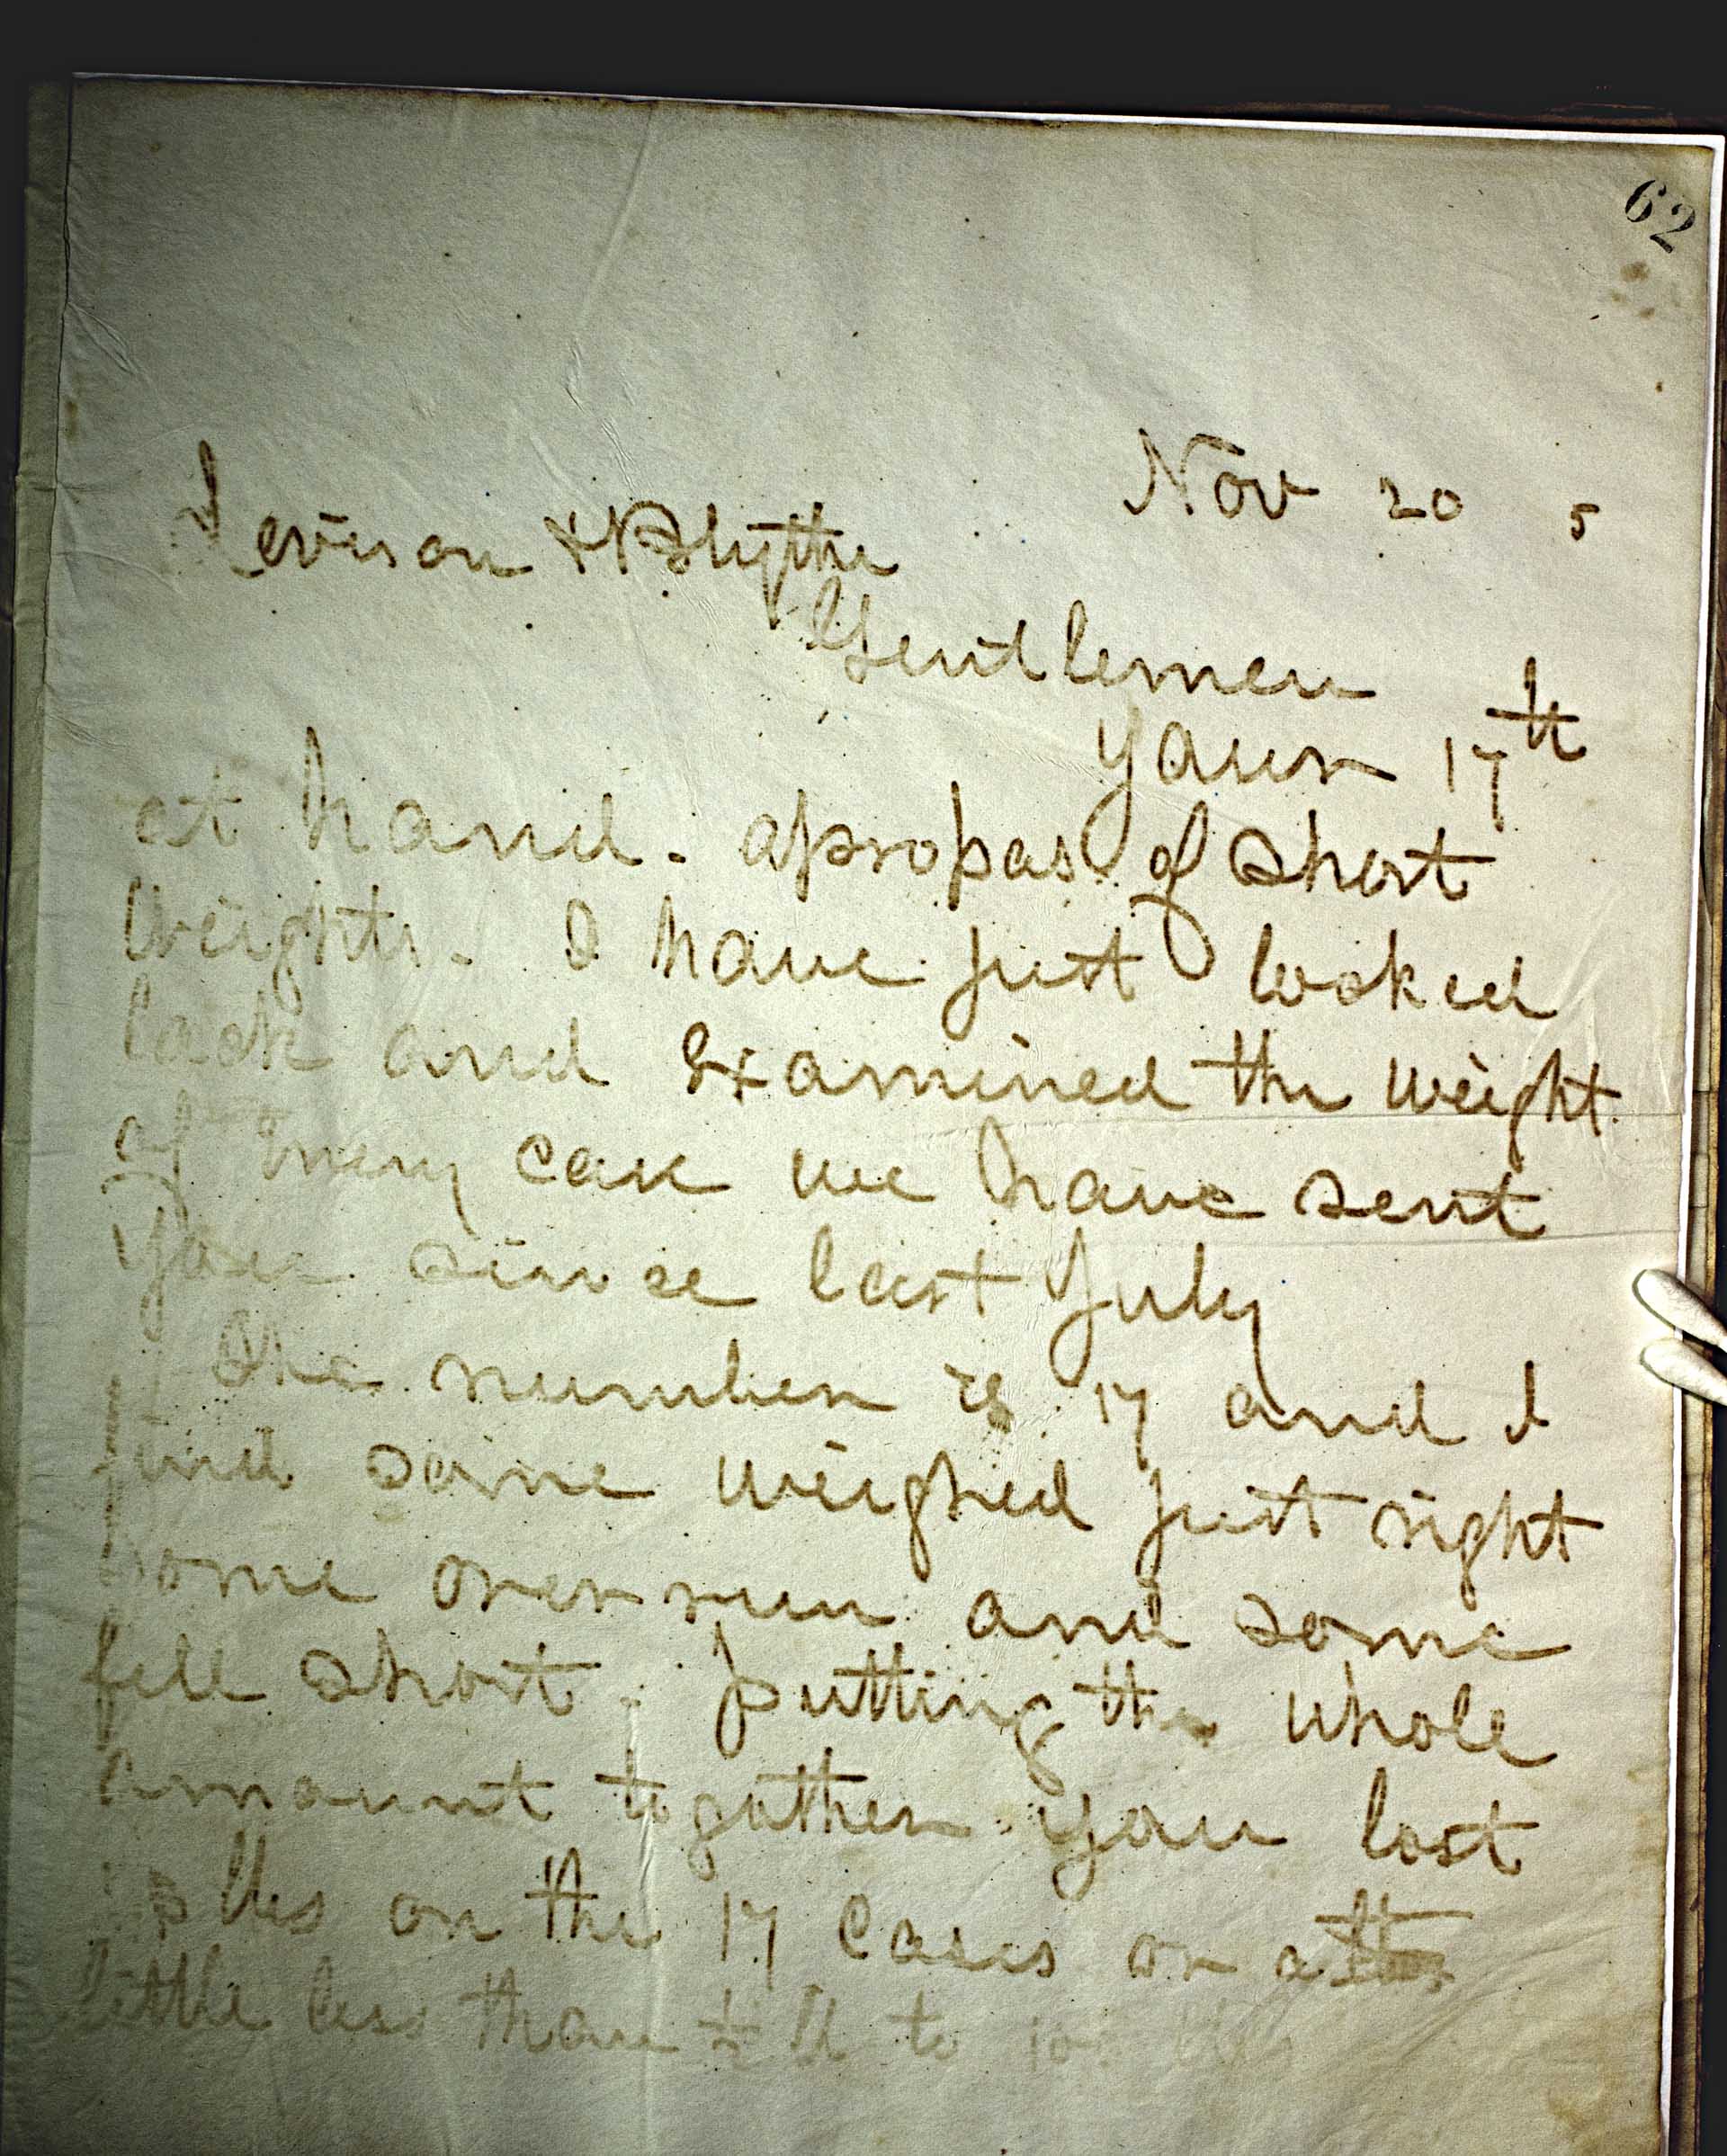 62
Nov 20 5
Levison & Blythe
Gentlemen
Yours 17th
at hand. apropos of short
Weights. I have just looked
back and Examined the weight
of every case we have sent
you since last July
The number is 17 and I
find some weighed just right
some over run and some
fell short. putting the whole
amount together you lost
lbs on the 17 Cases or a
little less than ½ lb to 100 lbs